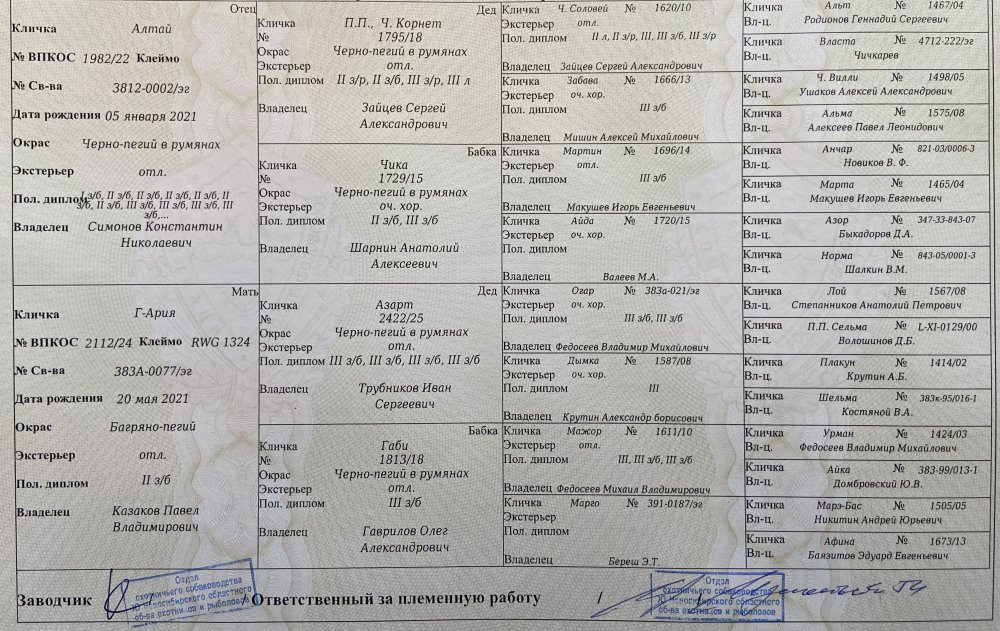 Отец
Кличка Алтай
№ ВПКОС 1982/22 Клеймо
№ Св-ва 3812-0002/эг
Дата рождения 05 января 2021
Окрас Черно-пегий в румянах
Экстерьер отл.
Пол. диплом I з/б, II з/б, II з/б, II з/б, II з/б, II
з/б, II з/б, III з/б, III з/б, III з/б, III
з/б,...
Владелец Симонов Константин
Николаевич
Мать
Кличка Г-Ария
№ ВПКОС 2112/24 Клеймо RWG 1324
№ Св-ва 383А-0077/эг
Дата рождения 20 мая 2021
Окрас Багряно-пегий
Экстерьер отл.
Пол. диплом II з/б
Владелец Казаков Павел
Владимирович
Дед
Кличка П.П., Ч. Корнет
№ 1795/18
Окрас Черно-пегий в румянах
Экстерьер отл.
Пол. диплом II з/р, II з/б, III з/р, III л
Владелец Зайцев Сергей
Александрович
Бабка
Кличка Чика
№ 1729/15
Окрас Черно-пегий в румянах
Экстерьер оч. хор.
Пол. диплом II з/б, III з/б
Владелец Шарнин Анатолий
Алексеевич
Дед
Кличка Азарт
№ 2422/25
Окрас Черно-пегий в румянах
Экстерьер отл.
Пол. диплом III з/б, III з/б, III з/б, III з/б
Владелец Трубников Иван
Сергеевич
Бабка
Кличка Габи
№ 1813/18
Окрас Черно-пегий в румянах
Экстерьер отл.
Пол. диплом III з/б
Владелец Гаврилов Олег
Александрович
Кличка Ч. Соловей № 1620/10
Экстерьер отл.
Пол. диплом II л, II з/р, III, III з/б, III з/р
Владелец Зайцев Сергей Александрович
Кличка Забава № 1666/13
Экстерьер оч. хор.
Пол. диплом III з/б
Владелец Мишин Алексей Михайлович
Кличка Мартин № 1696/14
Экстерьер отл.
Пол. диплом III з/б
Владелец Макушев Игорь Евгеньевич
Кличка Айда № 1720/15
Экстерьер оч. хор.
Пол. диплом
Владелец Валеев М.А.
Кличка Огар № 383а-021/эг
Экстерьер оч. хор.
Пол. диплом III з/б, III з/б
Владелец Федосеев Владимир Михайлович
Кличка Дымка № 1587/08
Экстерьер оч. хор.
Пол. диплом III
Владелец Крутин Александр борисович
Кличка Мажор № 1611/10
Экстерьер отл.
Пол. диплом III, III з/б, III з/б
Владелец Федосеев Михаил Владимирович
Кличка Марго № 391-0187/эг
Экстерьер
Пол. диплом
Владелец Береш Э.Т
Кличка Альт № 1467/04
Вл-ц. Родионов Геннадий Сергеевич
Кличка Власта № 4712-222/эг
Вл-ц. Чичкарев
Кличка Ч. Вилли № 1498/05
Вл-ц. Ушаков Алексей Александрович
Кличка Альма № 1575/08
Вл-ц. Алексеев Павел Леонидович
Кличка Анчар № 821-03/0006-3
Вл-ц. Новиков В. Ф.
Кличка Марта № 1465/04
Вл-ц. Макушев Игорь Евгеньевич
Кличка Азор № 347-33-843-07
Вл-ц. Быкадоров Д.А.
Кличка Норма № 843-05/0001-3
Вл-ц. Шалкин В.М.
Кличка Лой № 1567/08
Вл-ц. Степанников Анатолий Петрович
Кличка П.П. Сельма № L-XI-0129/00
Вл-ц. Волошинов Д.Б.
Кличка Плакун № 1414/02
Вл-ц. Крутин А.Б.
Кличка Шельма № 383к-95/016-1
Вл-ц. Костяной В.А.
Кличка Урман № 1424/03
Вл-ц. Федосеев Владимир Михайлович
Кличка Айка № 383-99/013-1
Вл-ц. Домбровский Ю.В.
Кличка Марэ-Бас № 1505/05
Вл-ц. Никитин Андрей Юрьевич
Кличка Афина № 1673/13
Вл-ц. Баязитов Эдуард Евгеньевич
Заводчик / Ответственный за племенную работу /
Отдел
охотничьего собаководства
Новосибирского областного
об-ва охотников и рыболовов
Отдел
охотничьего собаководства
Новосибирского областного
об-ва охотников и рыболовов